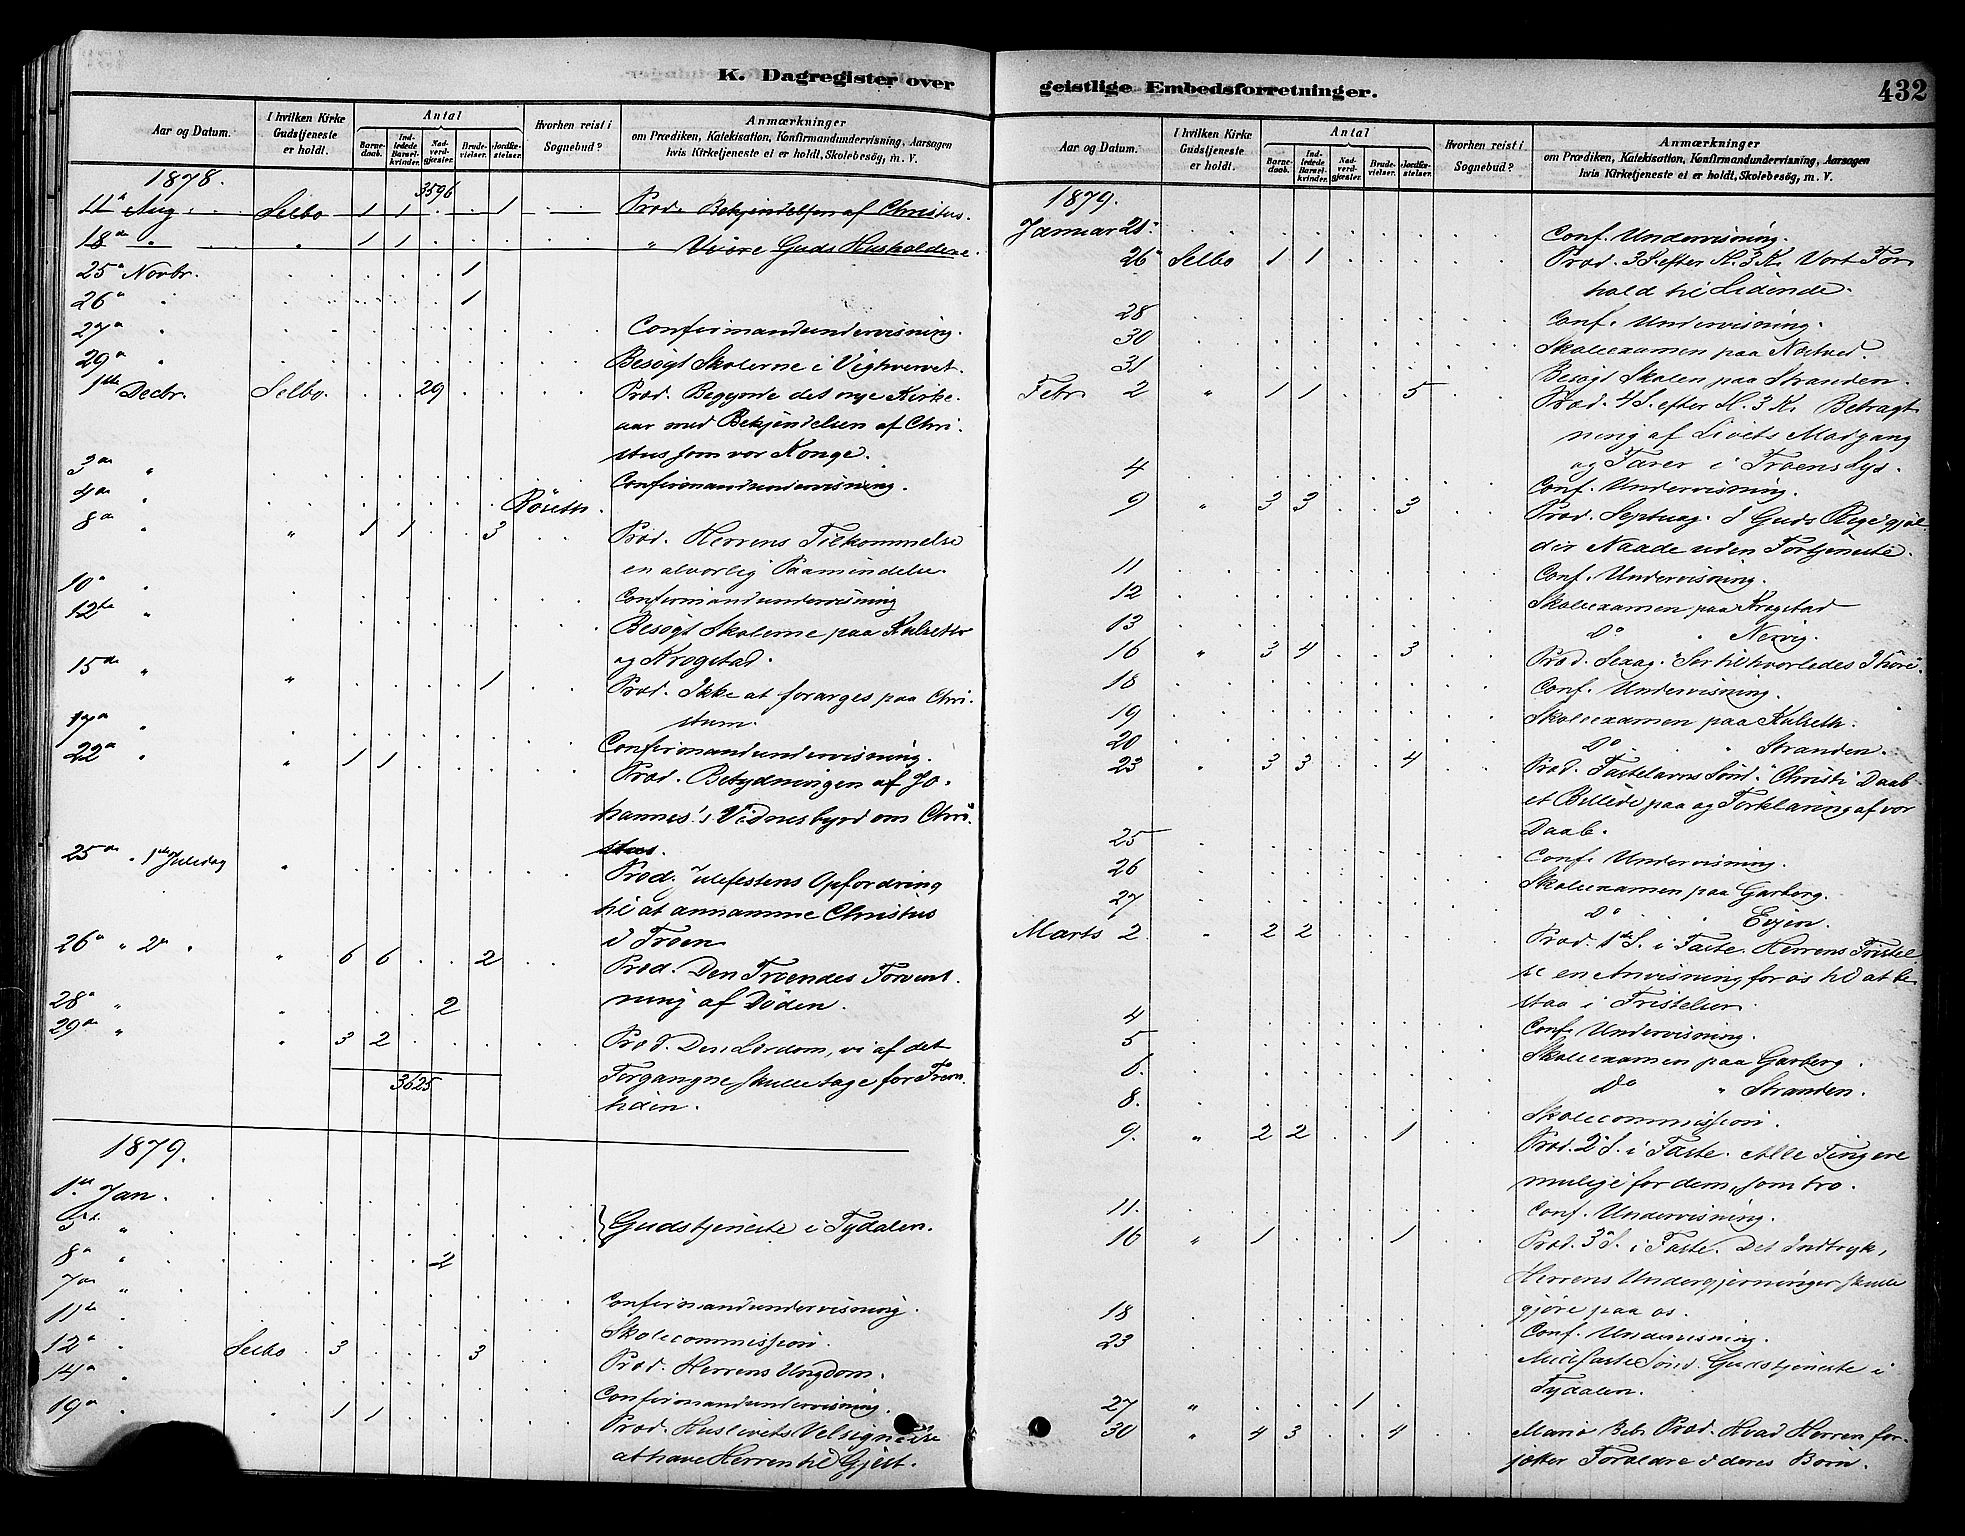 K. Dagregister over
Aar og Datum.
I hvilken Kirke Gudstjeneste er holdt.
Antal
Barnedaab.
Indledede Barselkvinder.
Nadverdgjæster.
Brudevielser.
Jordfæstelser.
Hvorhen reist i Sognebud?
Anmærkninger
om Prædiken, Katekisation, Konfirmandundervisning, Aarsagen
hvis Kirketjeneste ei er holdt, Skolebesøg, m. V.
1878. 3596
11te Aug. Selbo 1 1 1 Præd. Bekjendelsen af Christus.
18de " " 1 1 " Være Guds Husholdere.
25de Novbr. 1
26de " 1
27de " Confirmandundervisning.
29de " Besøgt Skolerne i Vighvervet.
1ste Decbr. Selbo. 29 Præd. Begynde det nye Kirke-
aar med Bekjendelsen af Chri-
stus som vor Konge.
3die " Confirmandundervisning.
4de " Røseth.
8de " " 1 1 3 Præd. Herrens Tilkommelse
en alvorlig Paamindelse.
10de " Confirmandundervisning
12te " Besøgt Skolerne paa Kulseth
og Krogstad.
15de " " 1 Præd. Ikke at forarges paa Chri-
stum.
17de " Confirmandundervisning.
22de " " 1 1 Præd. Betydningen af Jo-
hannes's Vidnesbyrd om Chri-
stus.
25de " 1ste Juledag " Præd. Julefestens Opfordring
til at annamme Christus
i Troen
26de " 2den " " 6 6 2 Præd. Den Troendes Forvent-
ning af Døden.
28de " " 2
29de " " 3 2 Præd. Den Lærdom, vi af det
3625 Forgangne skulle tage for Frem-
tiden.
1879.
1ste Jan.
5te " Gudstjeneste i Tydalen.
8de " 2
7de " Confirmandundervisning.
11te " Skolecommission.
12te " Selbo 3 3 Præd. Herrens Ungdom.
14de " Confirmandundervisning.
19de " " 1 1 Præd. Huslivets Velsignelse
at have Herren til Gjest.
geistlige Embedsforretninger.
432
Aar og Datum.
I hvilken Kirke Gudstjeneste er holdt.
Antal
Barnedaab.
Indledede Barselkvinder.
Nadverdgjæster.
Brudevielser.
Jordfæstelser.
Hvorhen reist i Sognebud?
Anmærkninger
om Prædiken, Katekisation, Konfirmandundervisning, Aarsagen
hvis Kirketjeneste ei er holdt, Skolebesøg, m. V.
1879.
Januar 21. Conf. Undervisning.
26 Selbo 1 1 Præd. 3 S. efter H. 3 K. Vort For-
hold til Lidende.
28 Conf. Undervisning.
30 Skoleexamen paa Næsved.
31 Besøgt Skolen paa Stranden.
Febr 2 " 1 1 5 Præd. 4 S. efter H. 3 K. Betragt-
ning af Livets Modgang
og Farer i Troens Lys.
4 Conf. Undervisning.
9 " 3 3 3 Præd. Septuag. I Guds Rige gjæl-
der Naade uden Fortjeneste.
11 Conf. Undervisning.
12 Skoleexamen paa Krogstad
13 Do " Nervig.
16 " 3 4 3 Præd. Sexag. "Ser til hvorledes I høre".
18 Conf. Undervisning.
19 Skoleexamen paa Kulseth.
20 Do " Stranden.
23 " 3 3 4 Præd. Fastelavns Sønd. Christi Daab
et Billede paa og Forklaring af vor
Daab.
25 Conf. Undervisning.
26 Skoleexamen paa Garberg.
27 Do " Evjen.
Marts 2 " 2 2 Præd. 1ste S. i Faste. Herrens Fristel-
se en Anvisning for os til at be-
staa i Fristelser.
4 Conf. Undervisning.
5 Skoleexamen paa Garberg.
6. Do " Stranden.
8. Skolecommission.
9. " 2 2 1 Præd. 2 S. i Faste. Alle Ting ere
mulige for dem, som tro.
11. Conf. Undervisning.
16 " 1 1 Præd. 3 S. i Faste. Det Indtryk,
Herrens Undergjerninger skulle
gjøre paa os.
18 Conf. Undervisning.
23 Midfaste Sønd. Gudstjeneste i
Tydalen.
27 " 1
30 " 4 3 4 Mariæ Beb. Præd. Hvad Herren for-
jætter Forældre i deres Børn.